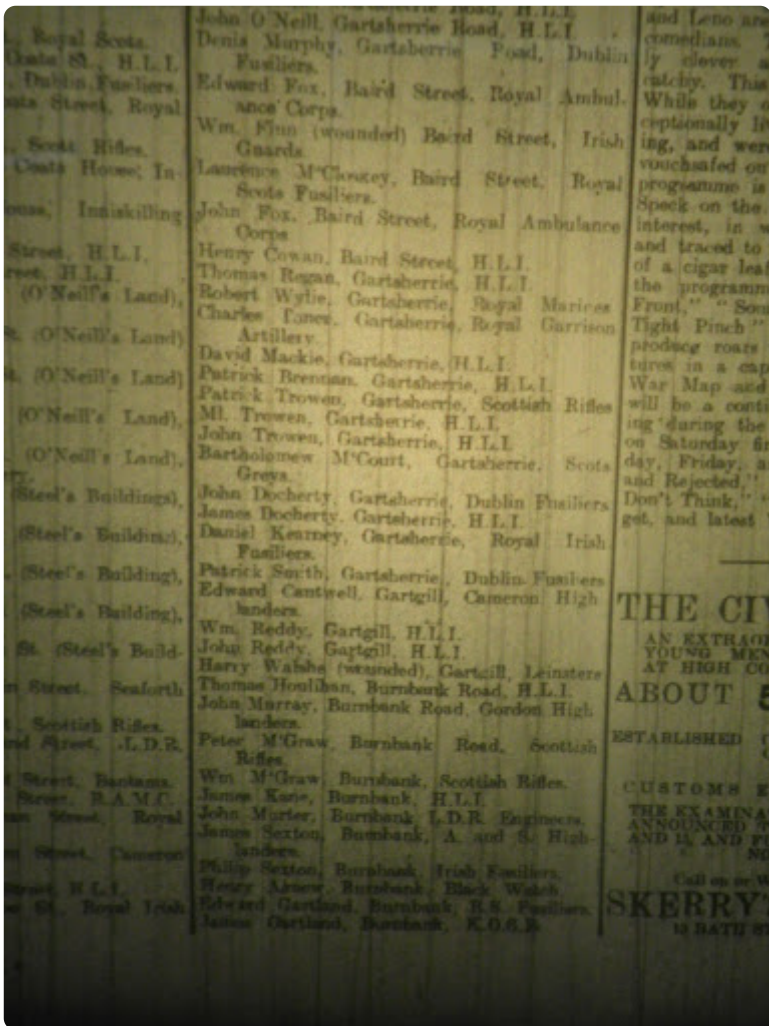 Royal Scots.
Coats St., H.L.I.
Dublin Fusiliers.
Coats Street, Royal
Scott Rifles.
Coats House, In-
Inniskilling
Street, H.L.I.
H.L.I.
(O'Neill's Land),
St. (O'Neill's Land)
St. (O'Neill's Land)
(O'Neill's Land),
(O'Neill's Land),
(Steel's Buildings),
(Steel's Building),
(Steel's Building),
(Steel's Building),
St. (Steel's Build-
Street, Seaforth
Scottish Rifles.
Street, L.D.R.
Street, Bantams.
Street, R.A.M.C.
Street, Royal
Street, Cameron
Street, H.L.I.
St., Royal Irish
Road, H.L.I.
John O'Neill, Gartsherrie Road, H.L.I.
Denis Murphy, Gartsherrie Road, Dublin
Fusiliers.
Edward Fox, Baird Street, Royal Ambul-
ance Corps.
Wm. Flun (wounded) Baird Street, Irish
Guards.
Laurence M'Closkey, Baird Street, Royal
Scots Fusiliers.
John Fox, Baird Street, Royal Ambulance
Corps
Henry Cowan, Baird Street, H.L.I.
Thomas Regan, Gartsherrie, H.L.I.
Robert Wylie, Gartsherrie, Royal Marines
Charles Gartsherrie, Royal Garrison
Artillery.
David Mackie, Gartsherrie, H.L.I.
Patrick Brennan, Gartsherrie, H.L.I.
Patrick Trowen, Gartsherrie, Scottish Rifles
Ml. Trowen, Gartsherrie, H.L.I.
John Trowen, Gartsherrie, H.L.I.
Bartholomew M'Court, Gartsherrie, Scots
Greys.
John Docherty, Gartsherrie, Dublin Fusiliers
James Docherty, Gartsherrie, H.L.I.
Daniel Kearney, Gartsherrie, Royal Irish
Fusiliers.
Patrick Smith, Gartsherrie, Dublin Fusiliers
Edward Cantwell, Gartgill, Cameron High
landers.
Wm. Reddy, Gartgill, H.L.I.
John Reddy, Gartgill, H.L.I.
Harry Walshe (wounded), Gartgill, Leinsters
Thomas Houlihan, Burnbank Road, H.L.I.
John Murray, Burnbank Road, Gordon High
landers.
Peter M'Graw, Burnbank Road, Scottish
Rifles.
Wm M'Graw, Burnbank, Scottish Rifles.
James Kane, Burnbank, H.L.I.
John Murter, Burnbank L.D.R. Engineers.
James Sexton, Burnbank, A. and S. High-
landers.
Philip Sexton, Burnbank, Irish Fusiliers.
Henry Agnew, Burnbank, Black Watch
Edward Gartland, Burnbank, R.S. Fusiliers.
James Gartland, Burnbank, K.O.S.B.
and Leno are
comedians.
ly clever a
catchy. This
While they
ceptionally
ing, and were
vouchsafed
programme is
Speck on the
interest, in
and traced to
of a cigar leaf
the programm
Front," "
Tight Pinch"
produce roars
tures in a cap
War Map and
will be a conti
ing during the
on Saturday
day, Friday,
and Rejected,"
Don't Think,"
get, and latest
THE CIV
AN EXTRAOR
YOUNG MEN
AT HIGH CO
ABOUT 5
ESTABLISHED
CUSTOMS E
THE EXAMINA
ANNOUNCED
AND 15, AND
Call on or W
SKERRY'
BATH